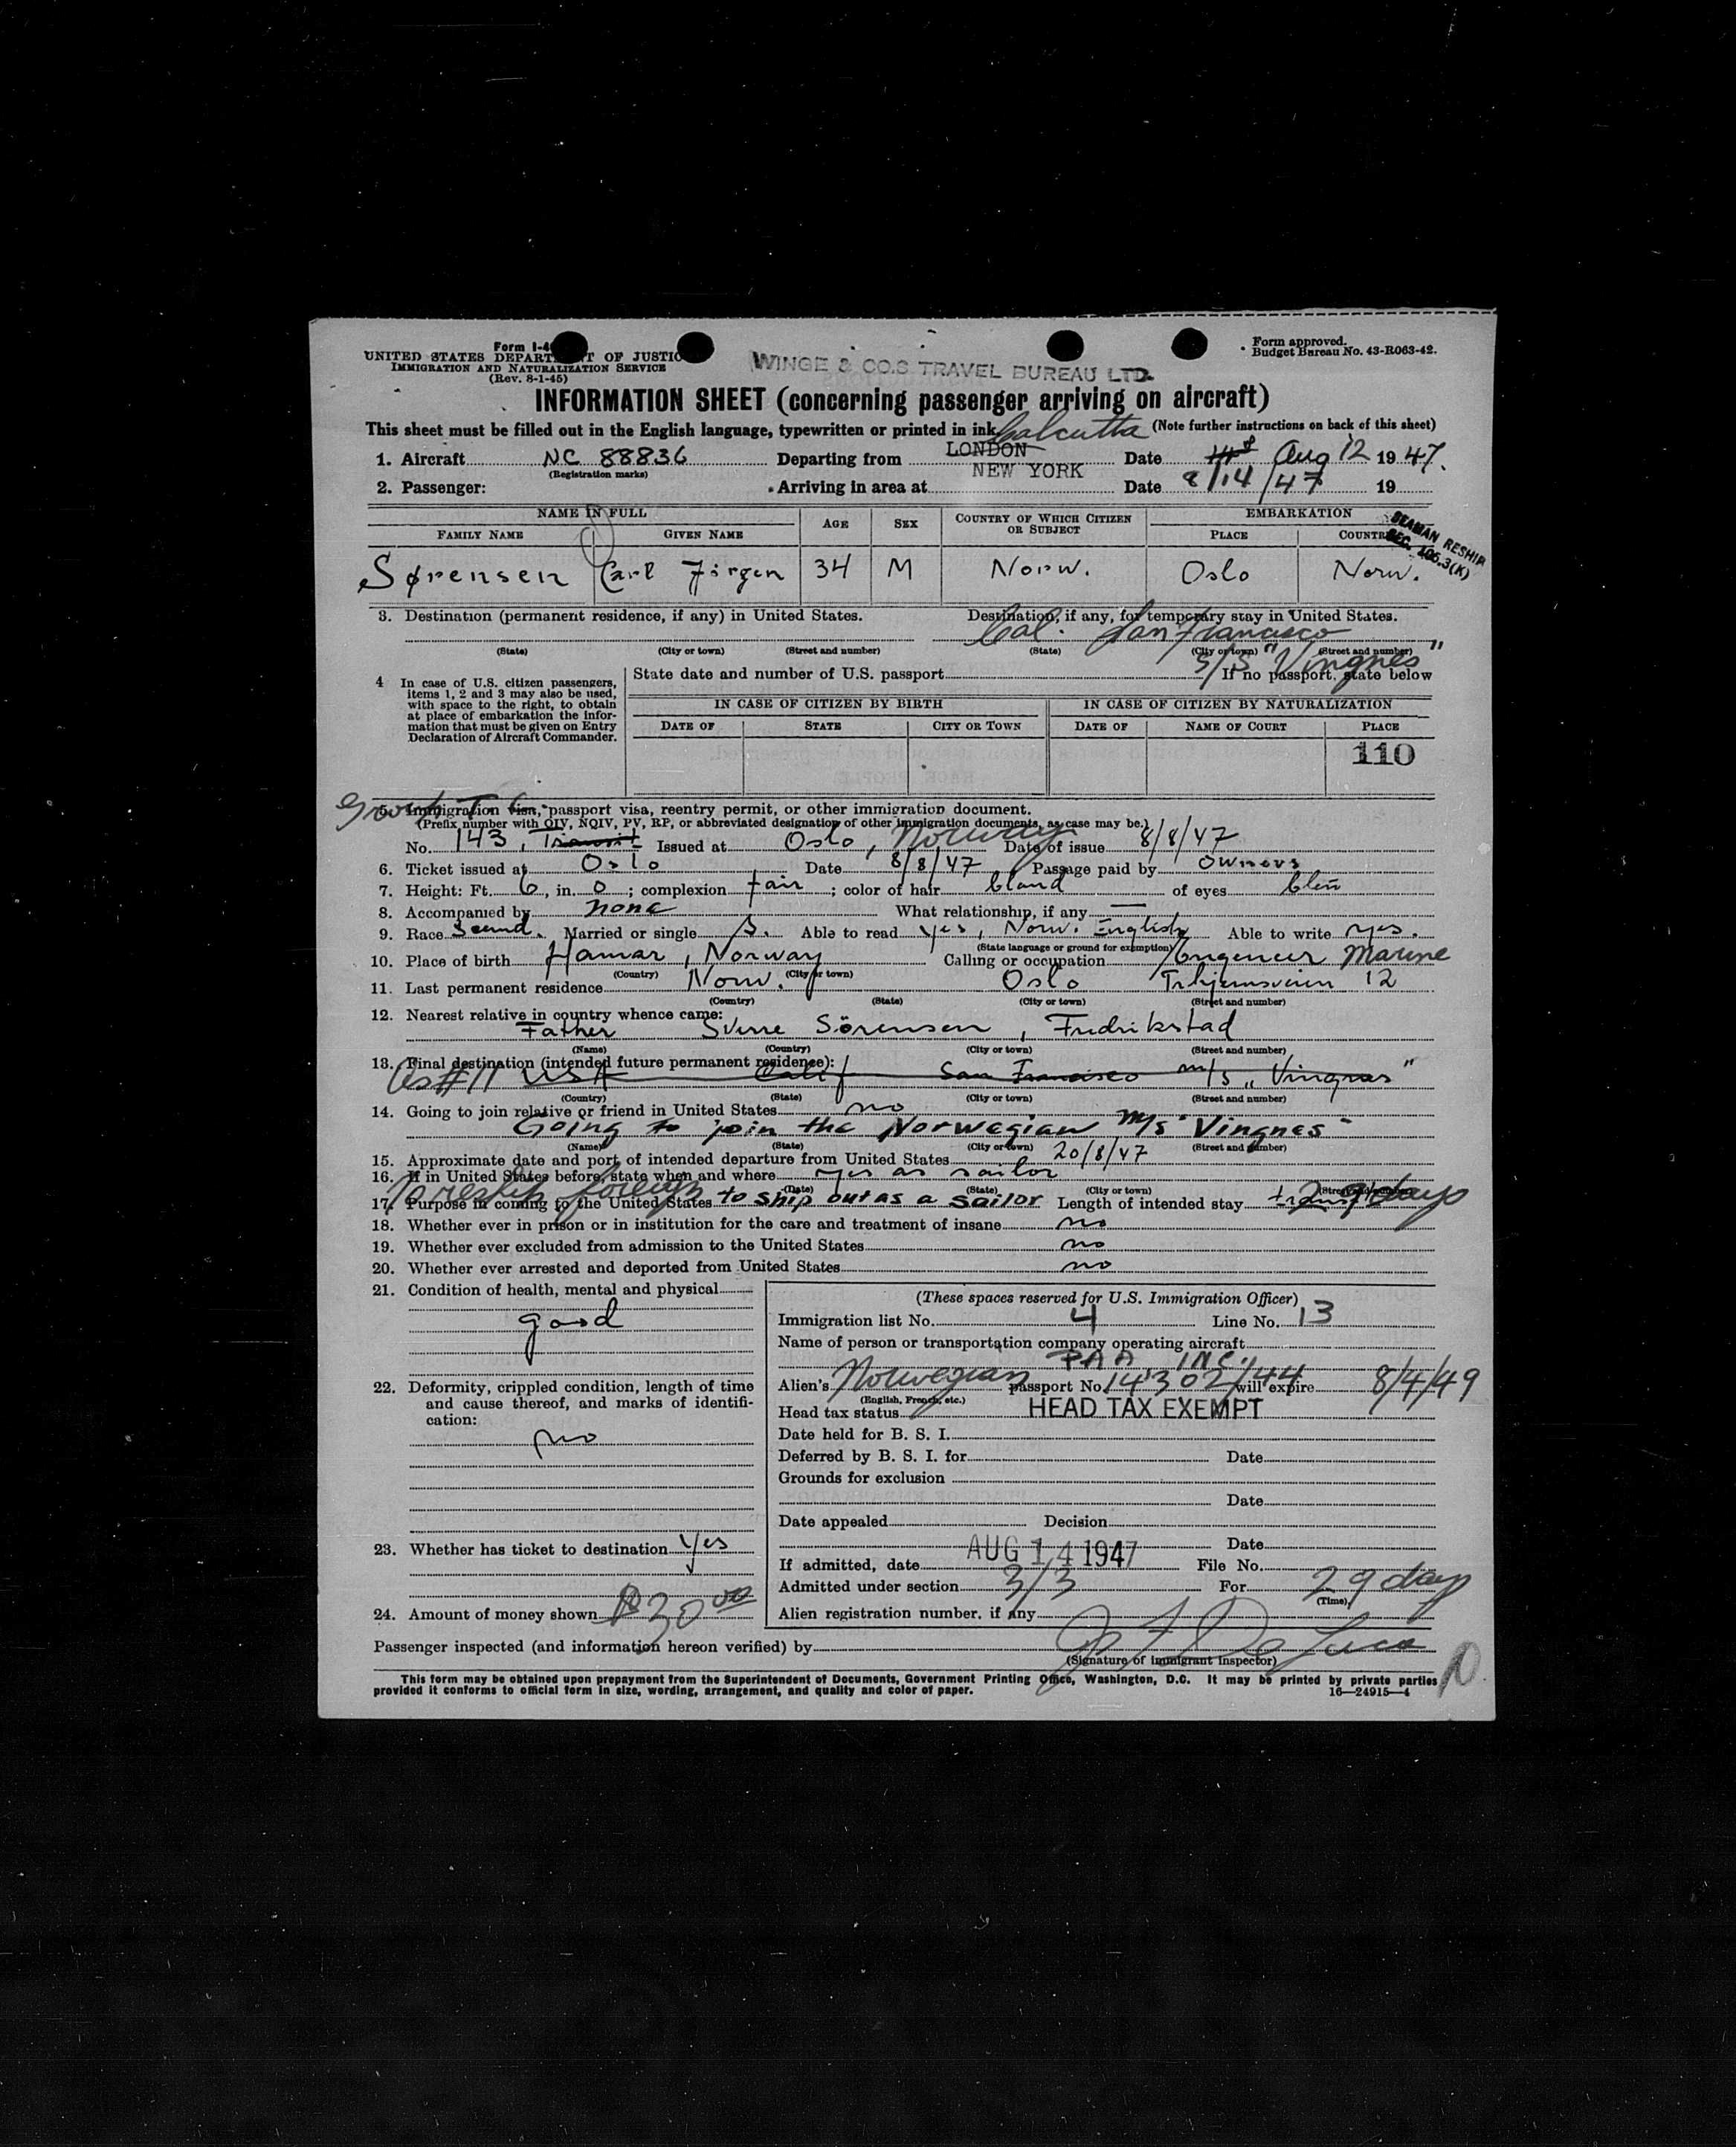 Form I-4
UNITED STATES DEPART T OF JUSTIC
IMMIGRATION AND NATURALIZATION SERVICE
(Rev. 8-1-45)
WINGE & CO.S TRAVEL BUREAU LTD.
Form approved.
Budget Bureau No. 43-R063-42.
INFORMATION SHEET (concerning passenger arriving on aircraft)
This sheet must be filled out in the English language, typewritten or printed in ink. (Note further instructions on back of this sheet)
Calcutta
1. Aircraft NC 88836 Departing from LONDON Date Aug 12 1947.
(Registration marks)
2. Passenger: Arriving in area at NEW YORK Date 8/14/47 19
NAME IN FULL AGE SEX COUNTRY OF WHICH CITIZEN OR SUBJECT EMBARKATION
FAMILY NAME GIVEN NAME PLACE COUNTR
SEAMAN RESHIP
SEC. 105.3(K)
Sørensen Carl Jörgen 34 M Norw. Oslo Norw.
3. Destination (permanent residence, if any) in United States. Destination, if any, for temporary stay in United States.
Cal. San Francisco
(State) (City or town) (Street and number) (State) (City or town) (Street and number)
S/S "Vingnes"
4 In case of U.S. citizen passengers, items 1, 2 and 3 may also be used, with space to the right, to obtain at place of embarkation the information that must be given on Entry Declaration of Aircraft Commander.
State date and number of U.S. passport If no passport, state below
IN CASE OF CITIZEN BY BIRTH IN CASE OF CITIZEN BY NATURALIZATION
DATE OF STATE CITY OR TOWN DATE OF NAME OF COURT PLACE
110
5. Immigration visa, passport visa, reentry permit, or other immigration document.
(Prefix number with QIV, NQIV, PV, RP, or abbreviated designation of other immigration documents, as case may be.)
No. 143, Transit Issued at Oslo, Norway Date of issue 8/8/47
6. Ticket issued at Oslo Date 8/8/47 Passage paid by owners
7. Height: Ft. 6, in. 0; complexion fair; color of hair bland of eyes
8. Accompanied by none What relationship, if any —
9. Race Scand. Married or single S. Able to read yes, Norw. English Able to write yes.
(State language or ground for exemption)
10. Place of birth Hamar, Norway Calling or occupation Engeneer Marine
(Country) (City or town)
11. Last permanent residence Norw. Oslo 12
(Country) (State) (City or town) (Street and number)
12. Nearest relative in country whence came:
Father Sverre Sörensen, Fredrikstad
(Name) (Country) (City or town) (Street and number)
13. Final destination (intended future permanent residence):
As #11 USA Calif San Francisco m/s "Vingnes"
(Country) (State) (City or town) (Street and number)
14. Going to join relative or friend in United States no
Going to join the Norwegian M/s "Vingnes"
(Name) (State) (City or town) (Street and number)
15. Approximate date and port of intended departure from United States 20/8/47
16. If in United States before, state when and where yes as sailor
(Date) (State) (City or town) (Street and number)
reship foreign
17. Purpose in coming to the United States to ship out as a sailor Length of intended stay 29 days
18. Whether ever in prison or in institution for the care and treatment of insane no
19. Whether ever excluded from admission to the United States no
20. Whether ever arrested and deported from United States no
21. Condition of health, mental and physical
good
22. Deformity, crippled condition, length of time and cause thereof, and marks of identification:
no
23. Whether has ticket to destination yes
24. Amount of money shown $30.00
(These spaces reserved for U.S. Immigration Officer)
Immigration list No. 4 Line No. 13
Name of person or transportation company operating aircraft
PAA INC.
Alien's Norwegian passport No. 14302/44 will expire 8/4/49
(English, French, etc.)
Head tax status HEAD TAX EXEMPT
Date held for B. S. I.
Deferred by B. S. I. for Date
Grounds for exclusion
Date
Date appealed Decision
Date
If admitted, date AUG 14 1947 File No.
Admitted under section 3/3 For 29 days
(Time)
Alien registration number, if any
Passenger inspected (and information hereon verified) by
(Signature of immigrant inspector)
This form may be obtained upon prepayment from the Superintendent of Documents, Government Printing Office, Washington, D.C. It may be printed by private parties
provided it conforms to official form in size, wording, arrangement, and quality and color of paper. 16—24915—4